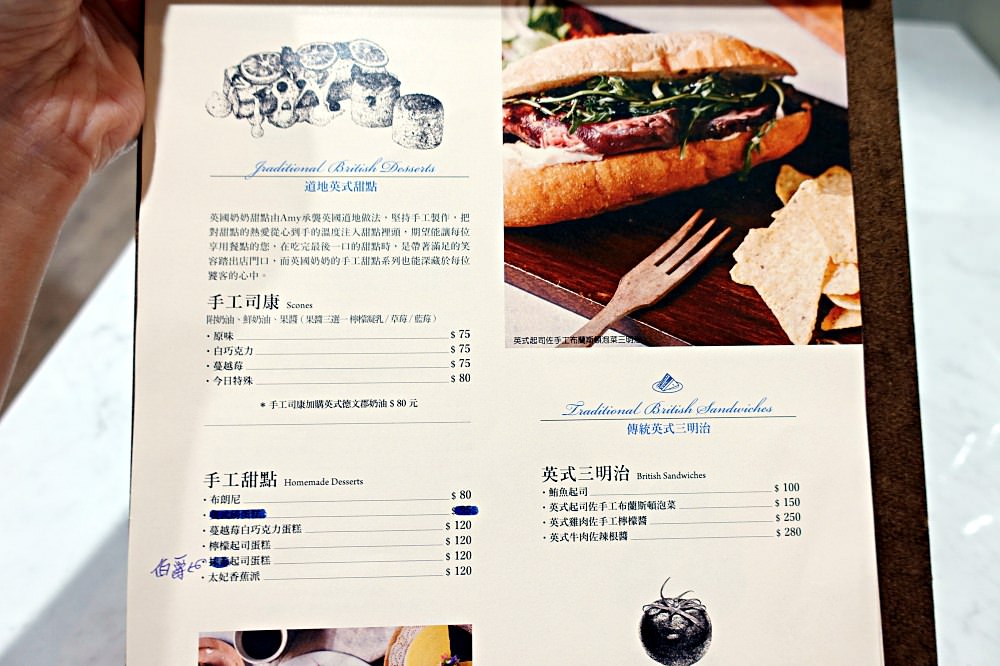 Traditional British Desserts
道地英式甜點
英國奶奶甜點由Amy承襲英國道地做法,堅持手工製作,把
對甜點的熱愛從心到手的溫度注入甜點裡頭,期望能讓每位
享用餐點的您,在吃完最後一口的甜點時,是帶著滿足的笑
容踏出店門口,而英國奶奶的手工甜點系列也能深藏於每位
饕客的心中。
手工司康 Scones
附奶油、鮮奶油、果醬(果醬三選一 檸檬凝乳/草莓/藍莓)
・原味 $ 75
・白巧克力 $ 75
・蔓越莓 $ 75
・今日特殊 $ 80
* 手工司康加購英式德文郡奶油 $ 80 元
手工甜點 Homemade Desserts
・布朗尼 $ 80
・蔓越莓白巧克力蛋糕 $ 120
・檸檬起司蛋糕 $ 120
伯爵 起司蛋糕 $ 120
・太妃香蕉派 $ 120
英式起司佐手工布蘭斯頓泡菜三明治
Traditional British Sandwiches
傳統英式三明治
英式三明治 British Sandwiches
・鮪魚起司 $ 100
・英式起司佐手工布蘭斯頓泡菜 $ 150
・英式雞肉佐手工檸檬醬 $ 250
・英式牛肉佐辣根醬 $ 280